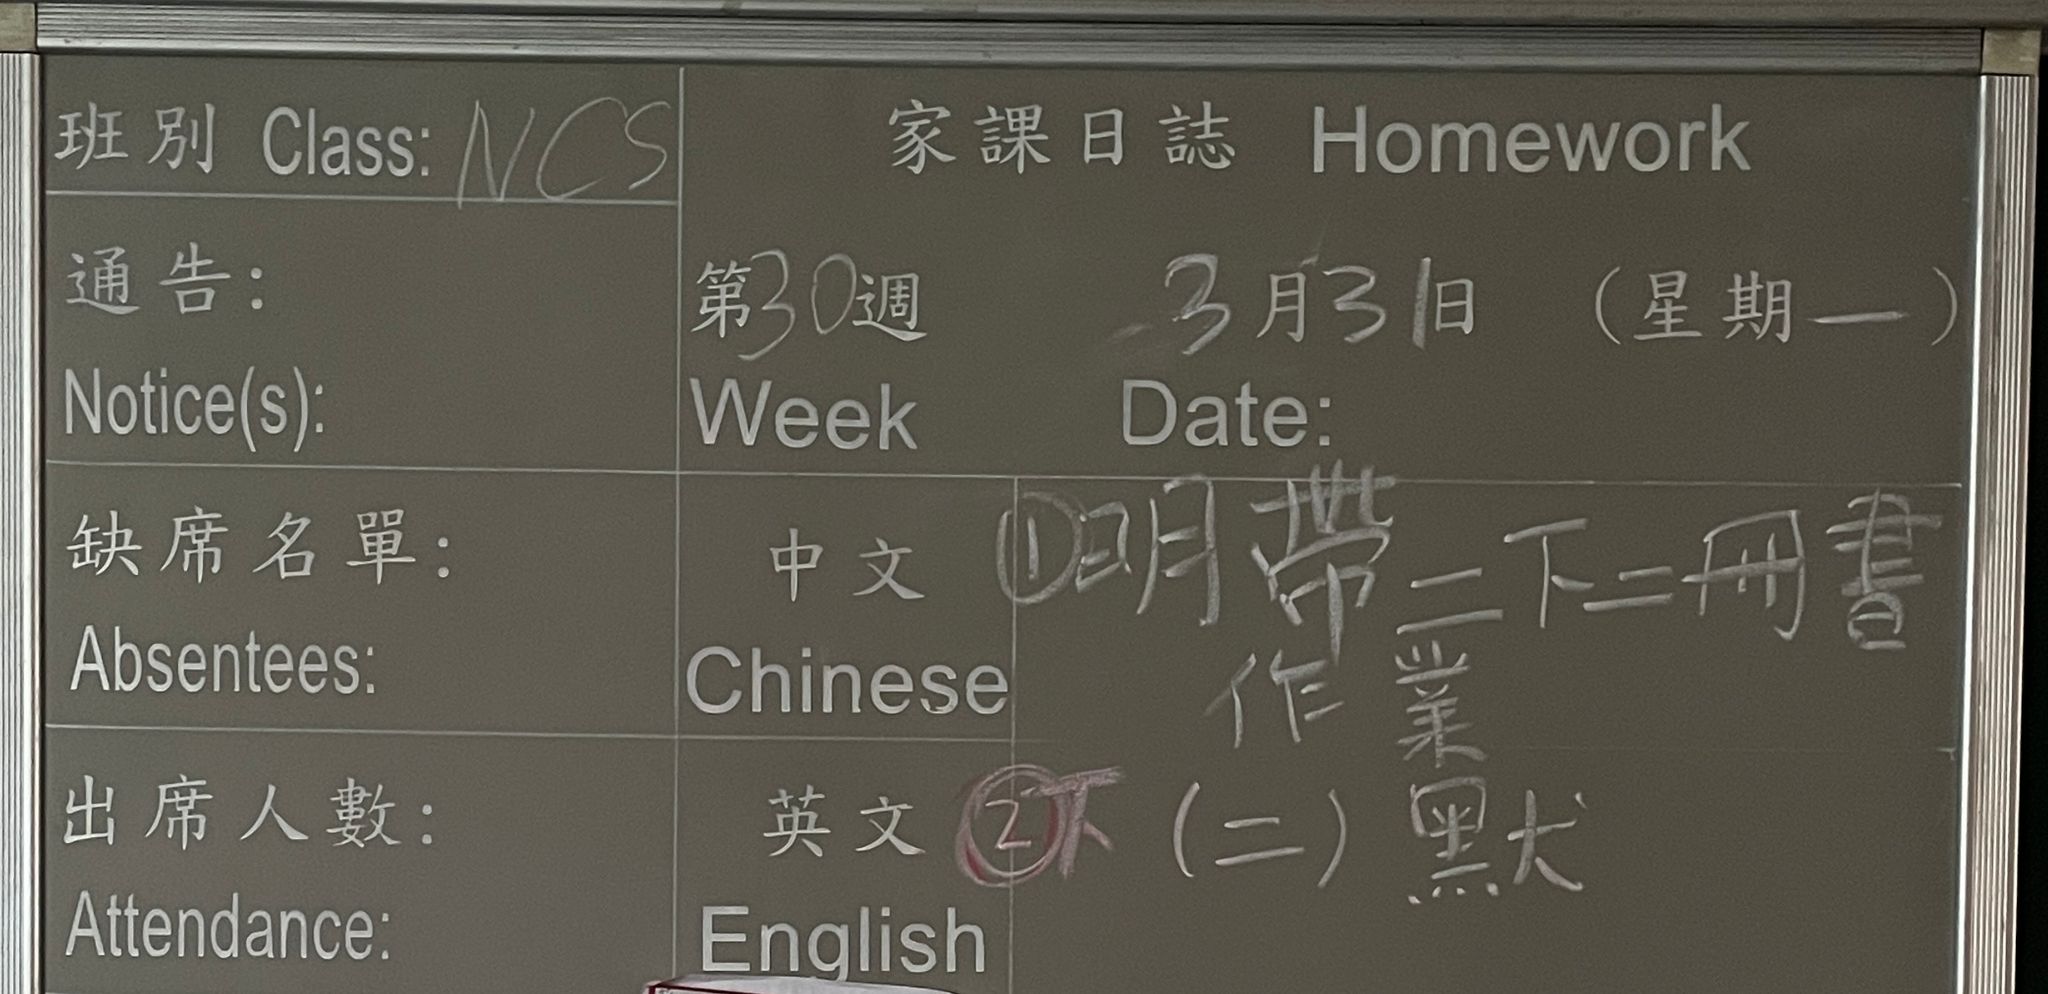 班別 Class: NCS
家課日誌 Homework
通告:
Notice(s):
第30週 3月31日 (星期一)
Week Date:
缺席名單:
Absentees:
中文
Chinese
①明帶二下二冊書
作業
出席人數:
Attendance:
英文
English
②下(二)默